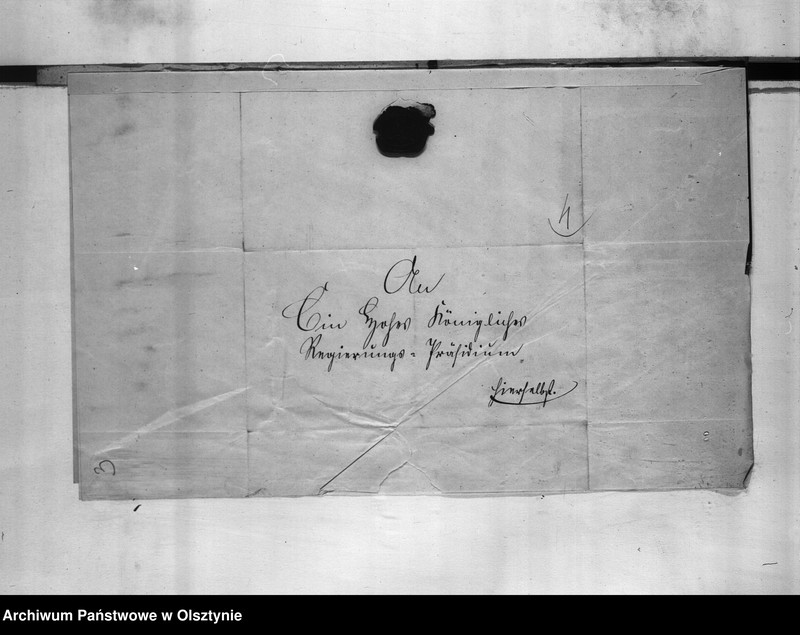 4
An
Ein Hohes Königliches
Regierungs-Präsidium
hierselbst.
3
Archiwum Państwowe w Olsztynie